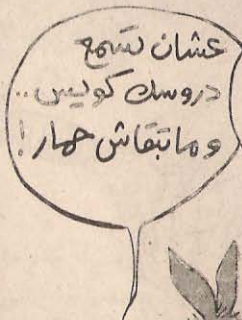 عشان تسمع
دروسك كويس..
وماتبقاش حمار!